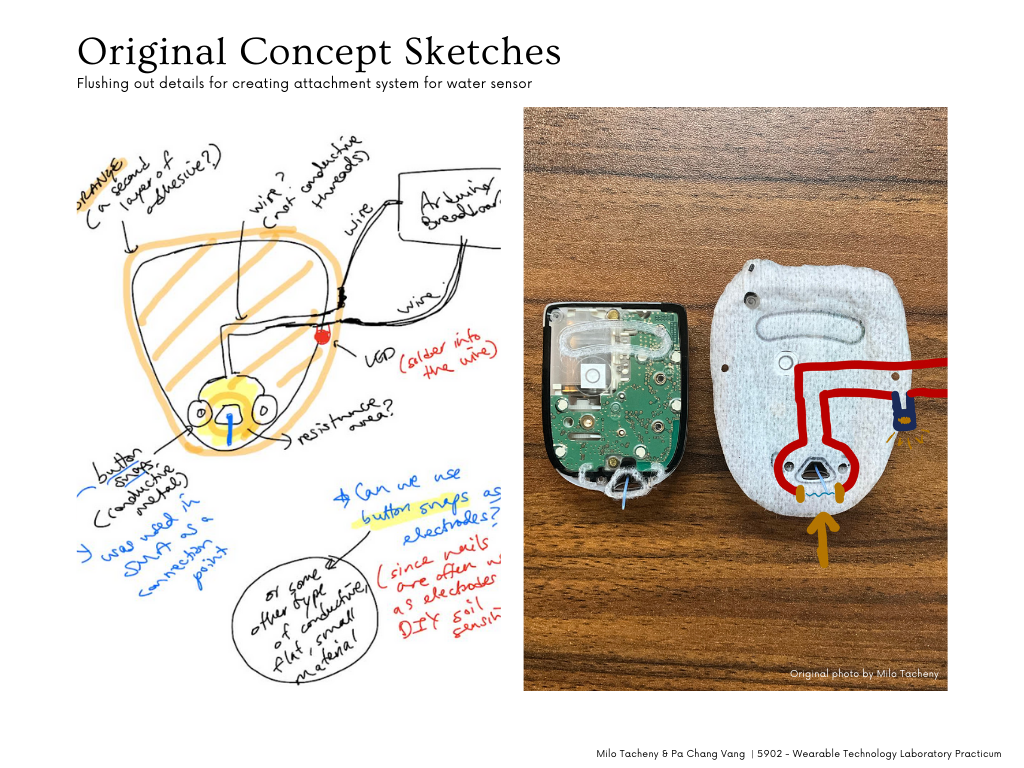 Original Concept Sketches
Flushing out details for creating attachment system for water sensor
ORANGE
(a second
layer of
adhesive?)
wire?
(not conductive
threads)
wire
Arduino
Breadboar
wire
LED
(solder into
the wire)
resistance
area?
button
snaps
(conductive
metal)
was used in
SMA as a
connection
point
Can we use
button snaps as
electrodes?
(since nails
are often
as electrodes
DIY soil
or some
other type
of conductive,
flat, small
material
Original photo by Milo Tacheny
Milo Tacheny & Pa Chang Vang | 5902 - Wearable Technology Laboratory Practicum